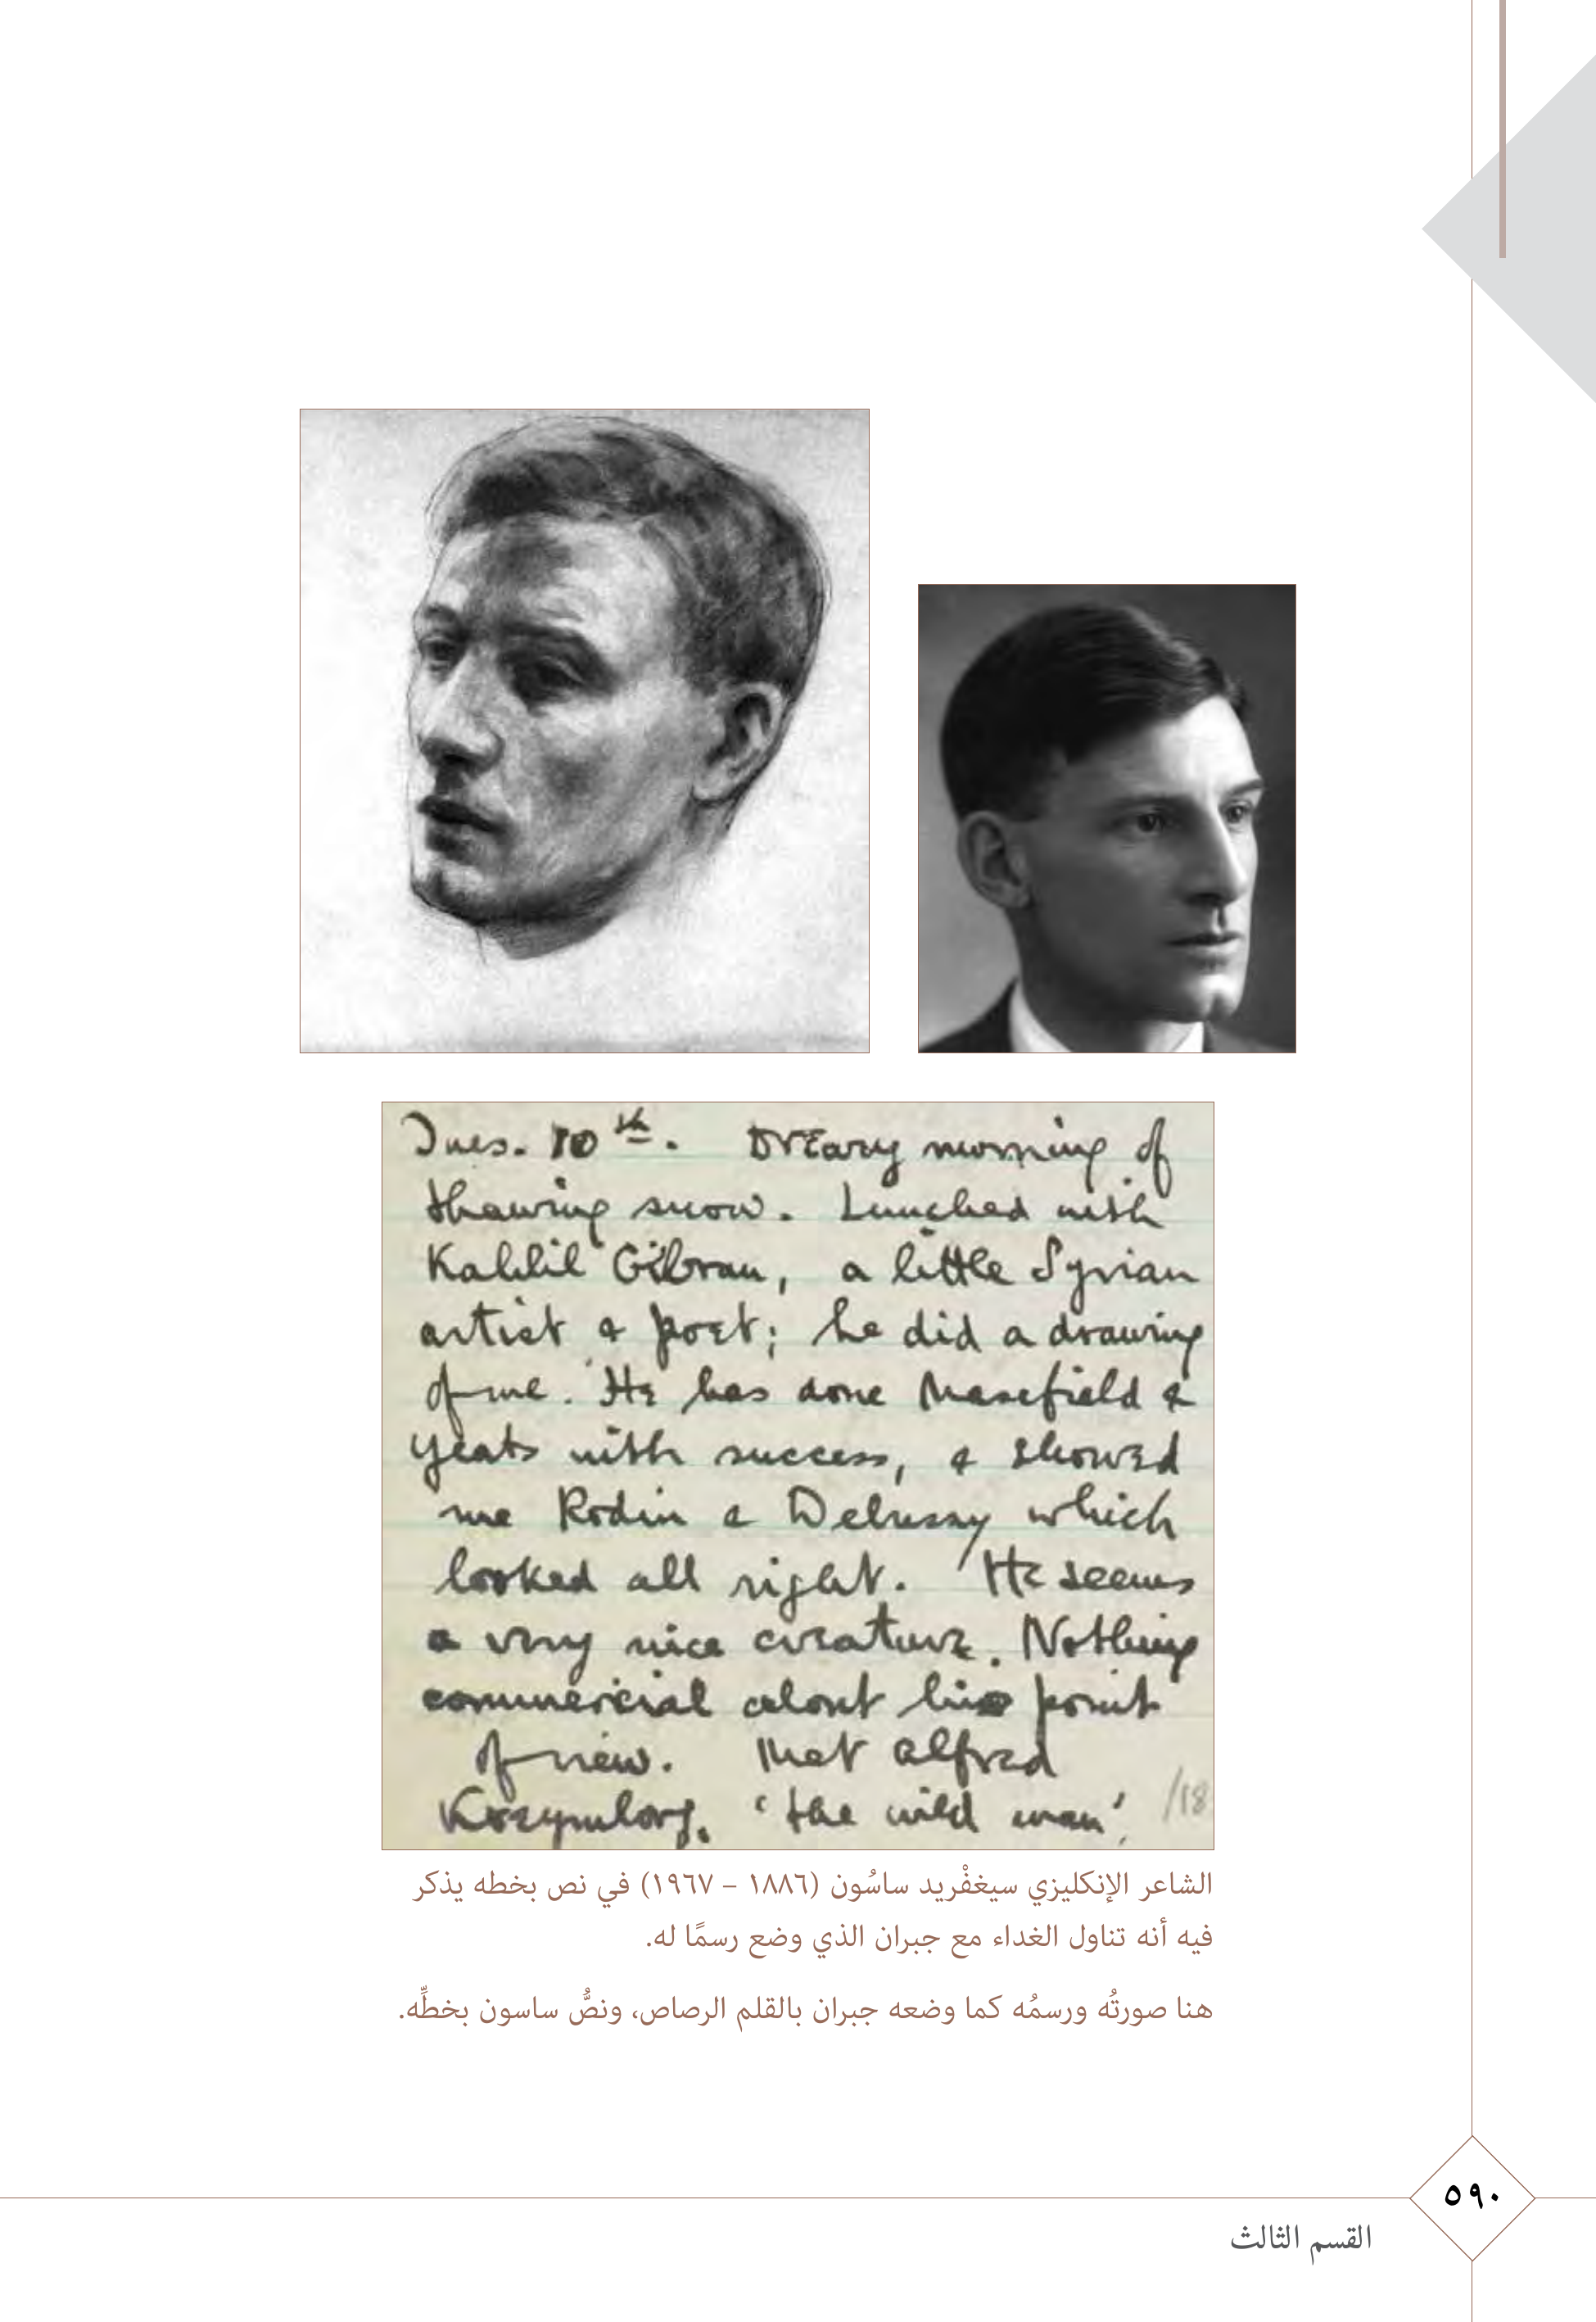 Tues. 10th. Dreary morning of
thawing snow. Lunched with
Kahlil Gibran, a little Syrian
artist & poet; he did a drawing
of me. He has done Masefield &
Yeats with success, & showed
me Rodin & Debussy which
looked all right. He seems
a very nice creature. Nothing
commercial about his point
of view. Met Alfred
Kreymborg. 'the wild man'.
/18
الشاعر الإنكليزي سيغفْريد ساسُون (١٨٨٦ – ١٩٦٧) في نص بخطه يذكر
فيه أنه تناول الغداء مع جبران الذي وضع رسمًا له.
هنا صورتُه ورسمُه كما وضعه جبران بالقلم الرصاص، ونصُّ ساسون بخطِّه.
٥٩٠
القسم الثالث